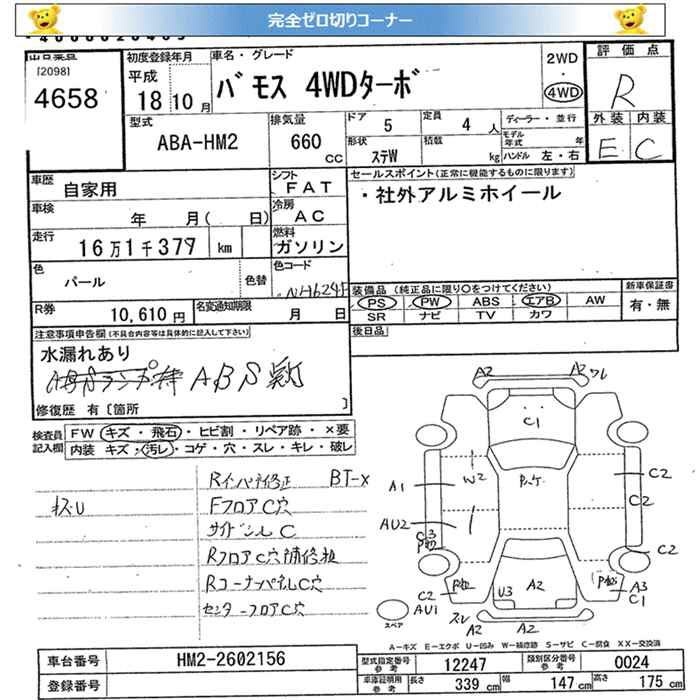 完全ゼロ切りコーナー
出品番号
[2098]
4658
初度登録年月
平成
18年10月
車名・グレード
バモス 4WDターボ
2WD
・
4WD
評価点
R
外装 内装
E C
型式
ABA-HM2
排気量
660
CC
ドア 5
定員 4 人
形状 ステW
積載 kg
ディーラー・並行
モデル年式 年
ハンドル 左・右
車歴 自家用
シフト FAT
車検 年 月( 日)
冷房 AC
走行 16万1千377 km
燃料 ガソリン
色 パール
色替
色コード
R券 10,610円
名変通知期限 月 日
セールスポイント(正常に機能するものに限ります)
・社外アルミホイール
装備品(純正品に限り○をつけてください)
PS PW ABS エアB AW
SR ナビ TV カワ
新車保証書
有・無
後日品
注意事項申告欄(不具合内容等は具体的に記入して下さい)
水漏れあり
ABS
修復歴 有〔箇所 〕
検査員記入欄
FW キズ・飛石・ヒビ割・リペア跡・×要
内装 キズ・汚レ・コゲ・穴・スレ・キレ・破レ
BT-x
FフロアC穴
サイドシルC
RフロアC穴補修板
RコーナーパネルC穴
センターフロアC穴
A2 A2
C1
W2
A1
AU2
C2
C2
C2
C2
AU1
U3
A2
A3
C1
A2 A2
スペア
A-キズ E-エクボ U-凹み W-補修跡 S-サビ C-腐食 XX-交換済
車台番号 HM2-2602156
登録番号
型式指定番号参考 12247
類別区分番号参考 0024
車庫証明用参考 長さ 339cm 幅 147cm 高さ 175cm